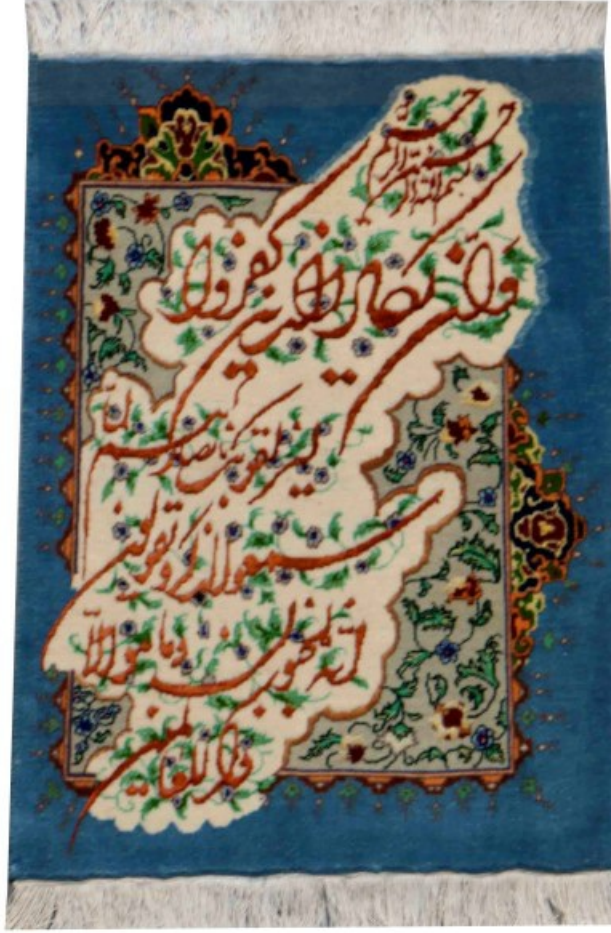 بسم الله الرحمن الرحیم
وَان یکاد الذین کفروا
لیزلقونک بابصارهم لمّا
سمعوا الذکر و یقولون
انّه لمجنون و ما هو الّا
ذکر للعالمین